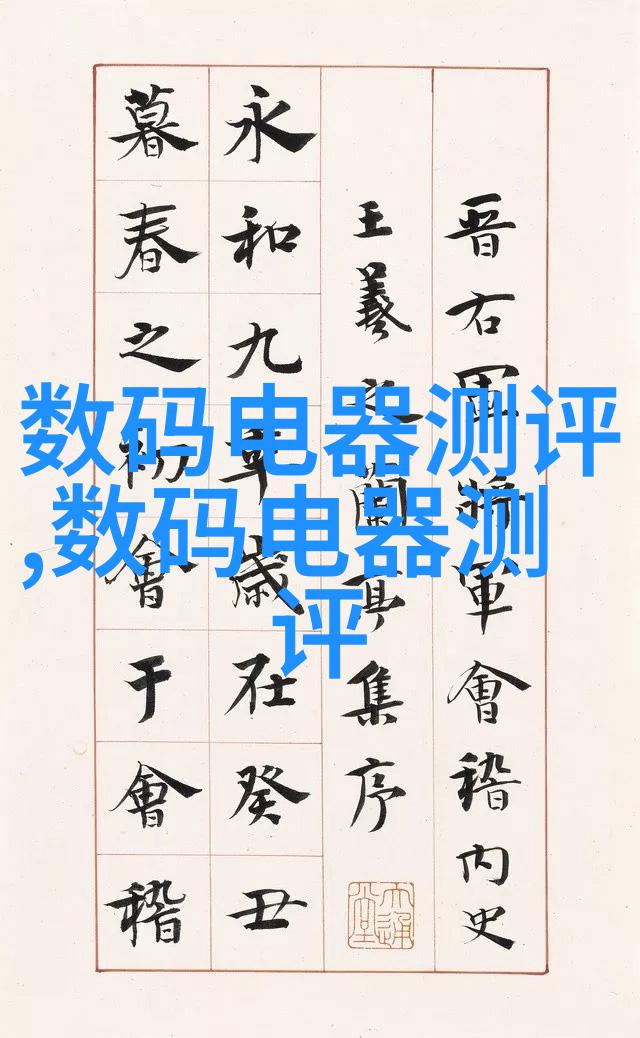 晉右軍將軍會稽内史
王羲之蘭亭集序
永和九年歲在癸丑
暮春之初會于會稽
数码电器测评
,数码电器测
评